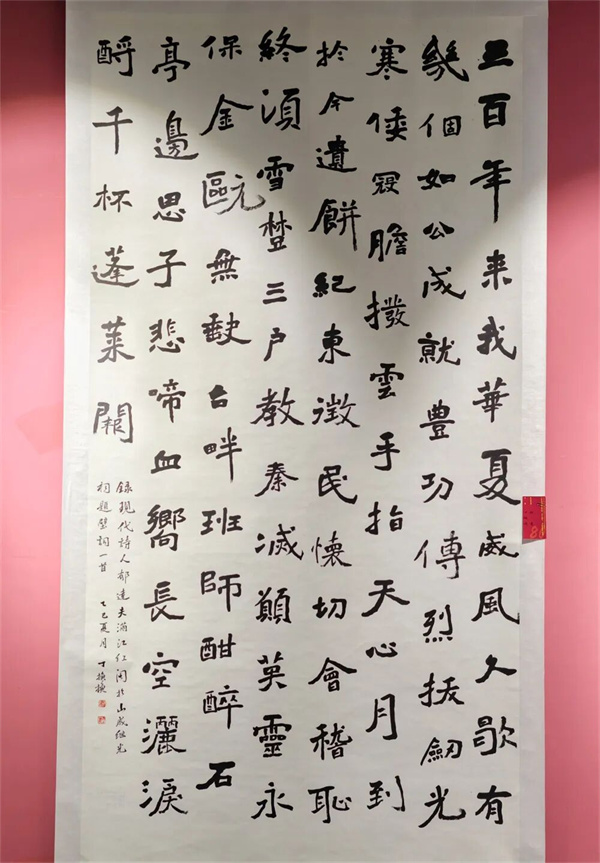 三百年来我華夏威風久歇有
幾個如公成就豊功傳烈拔劒光
寒倭寇膽撥雲手指天心月到
於今遺餅紀東徵民懷切會稽恥
終須雪楚三户教秦滅願英靈永
保金甌無缺台畔班師酣醉石
亭邊思子悲啼血嚮長空灑淚
酹千杯蓬莱闕
録現代詩人郁達夫滿江红闽於山戚继光
祠題壁詞一首 乙巳夏月 丁